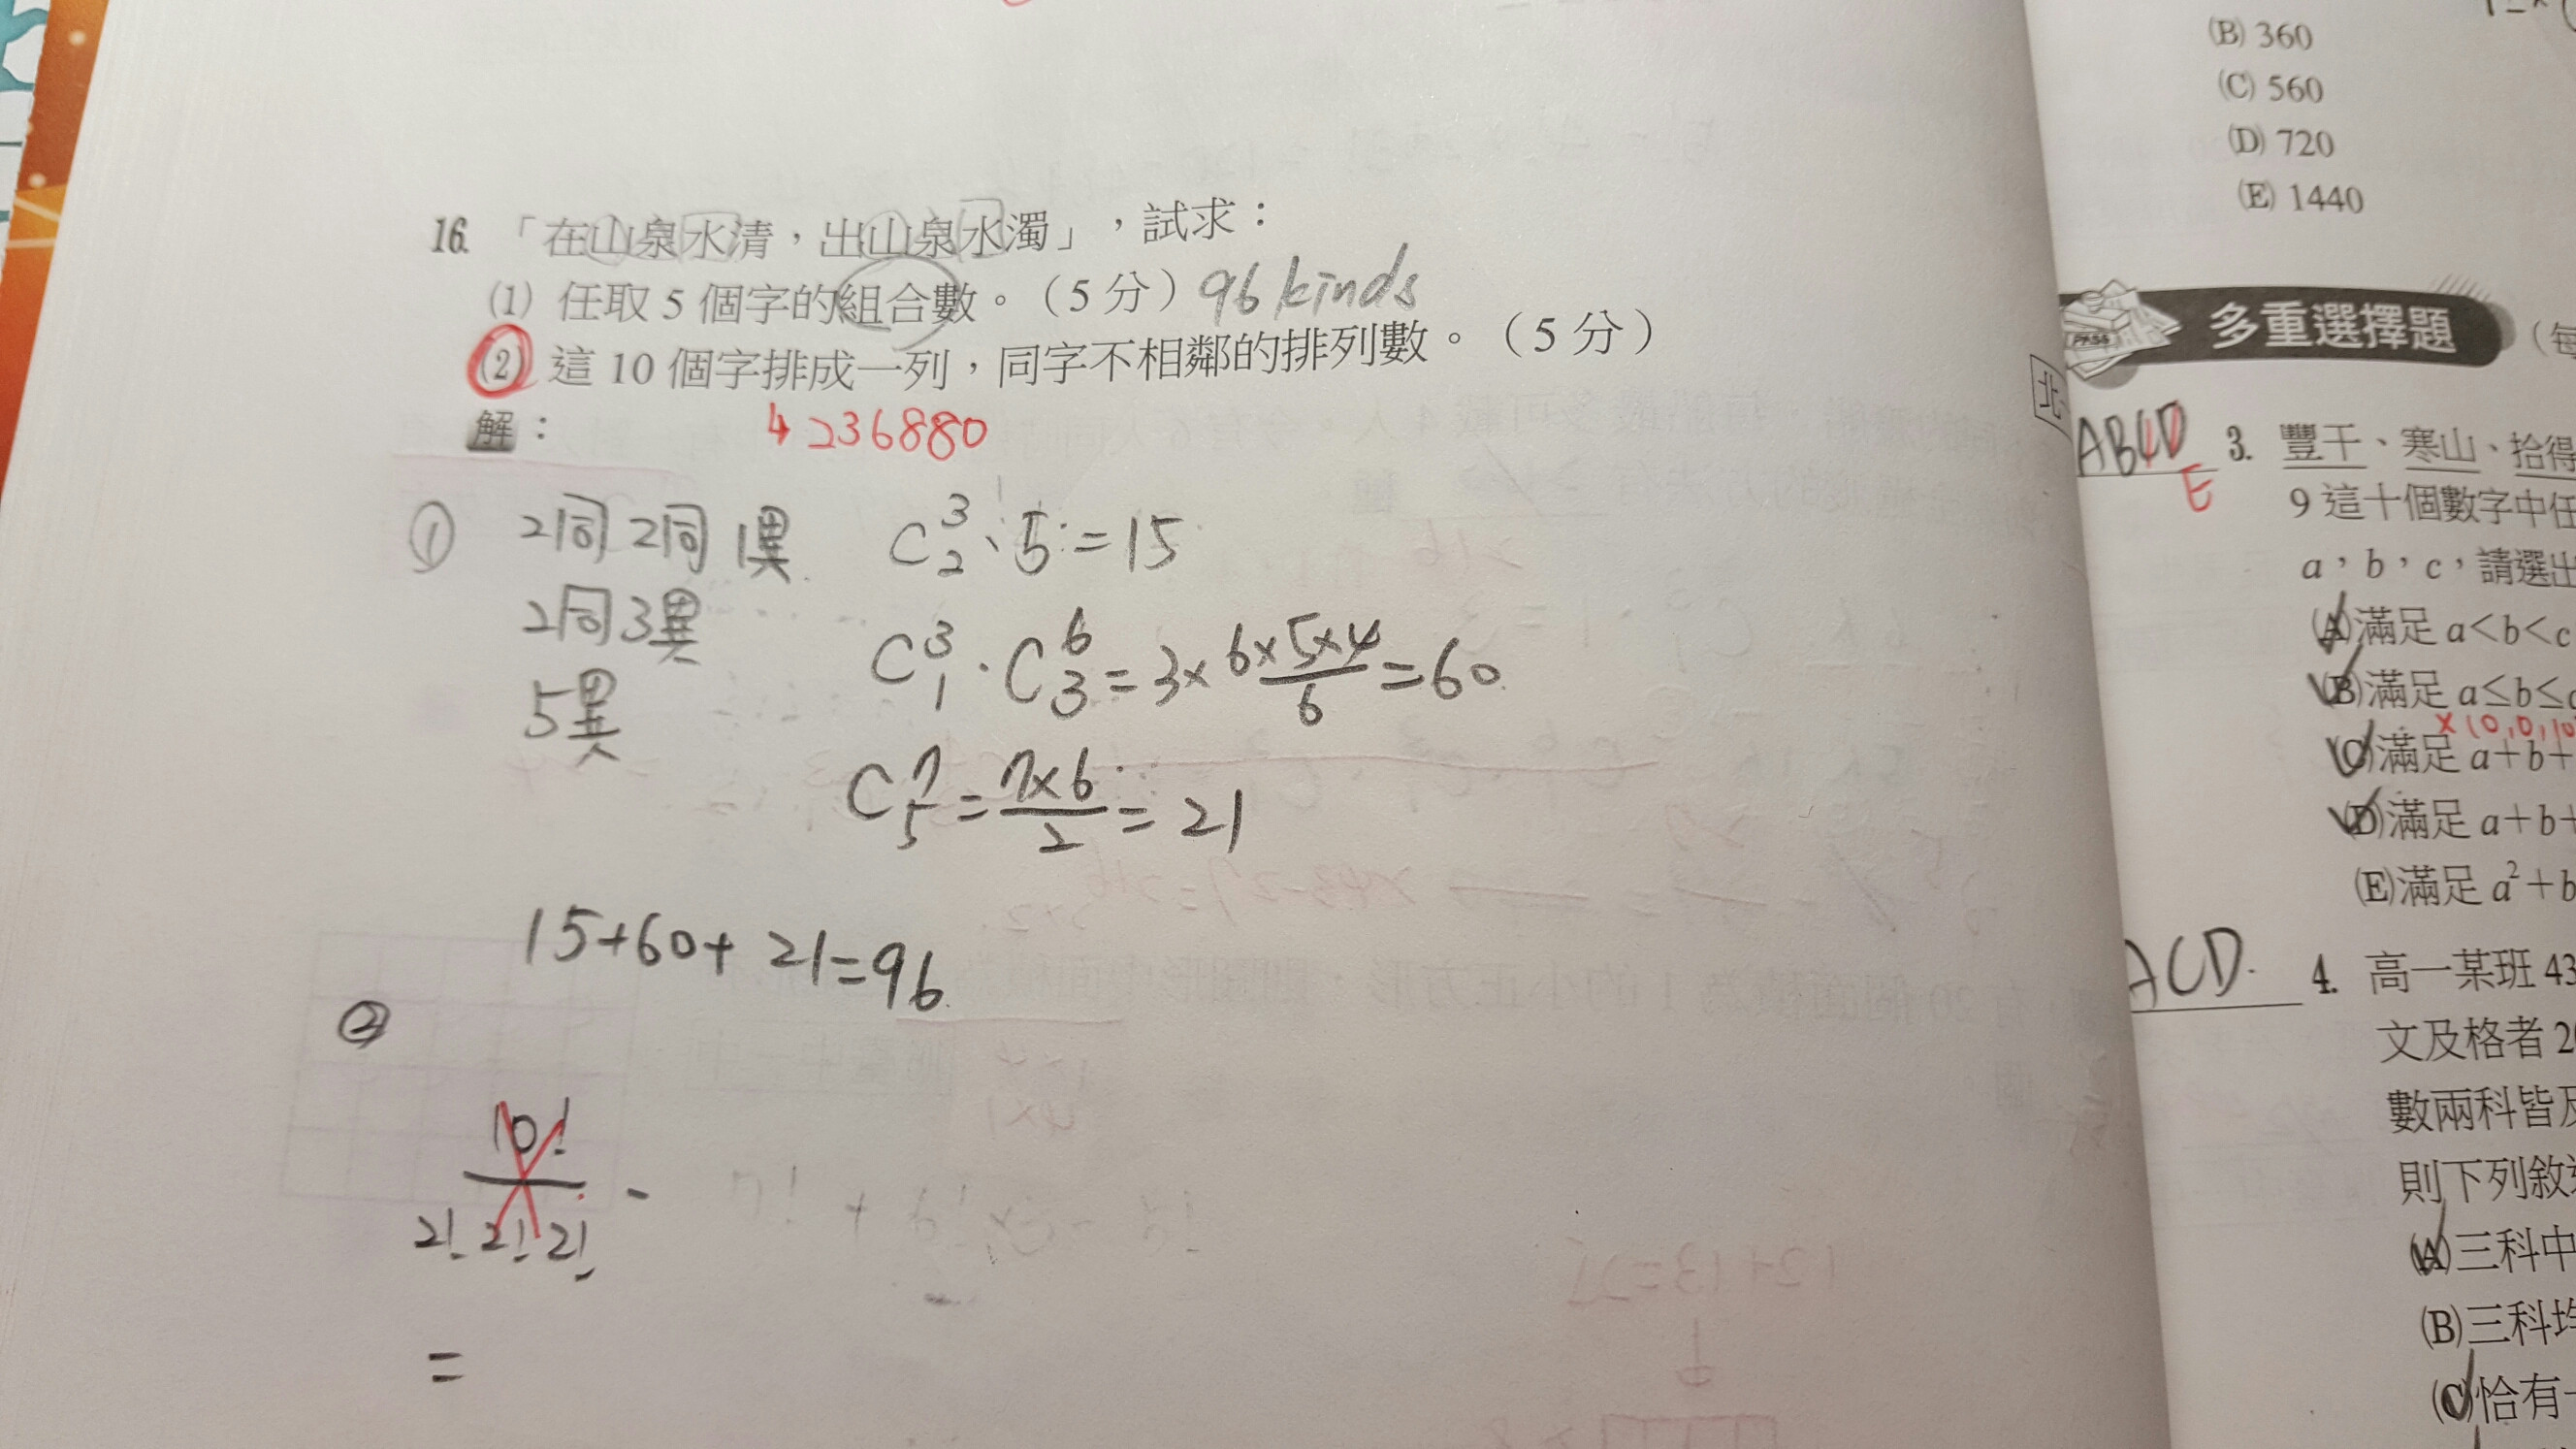 16. 「在山泉水清，出山泉水濁」，試求：
(1) 任取 5 個字的組合數。（5 分）96 kinds
(2) 這 10 個字排成一列，同字不相鄰的排列數。（5 分）
解：
4236880
① 2同 2同 1異 C³₂·5=15
2同3異 C³₁·C⁶₃=3×6×5×4/6=60
5異
C⁷₅=7×6/2=21
15+60+21=96
②
10!/2!2!2! -
=
(B) 360
(C) 560
(D) 720
(E) 1440
多重選擇題
北
ABCD
E
3. 豐干、寒山、拾得
9 這十個數字中任
a，b，c，請選出
(A)滿足 a<b<c
(B)滿足 a≤b≤c
×(0,0,10
(C)滿足 a+b+
(D)滿足 a+b+
(E)滿足 a²+b
ACD.
4. 高一某班 43
文及格者 2
數兩科皆及
則下列敘述
(A)三科中
(B)三科均
(C)恰有一